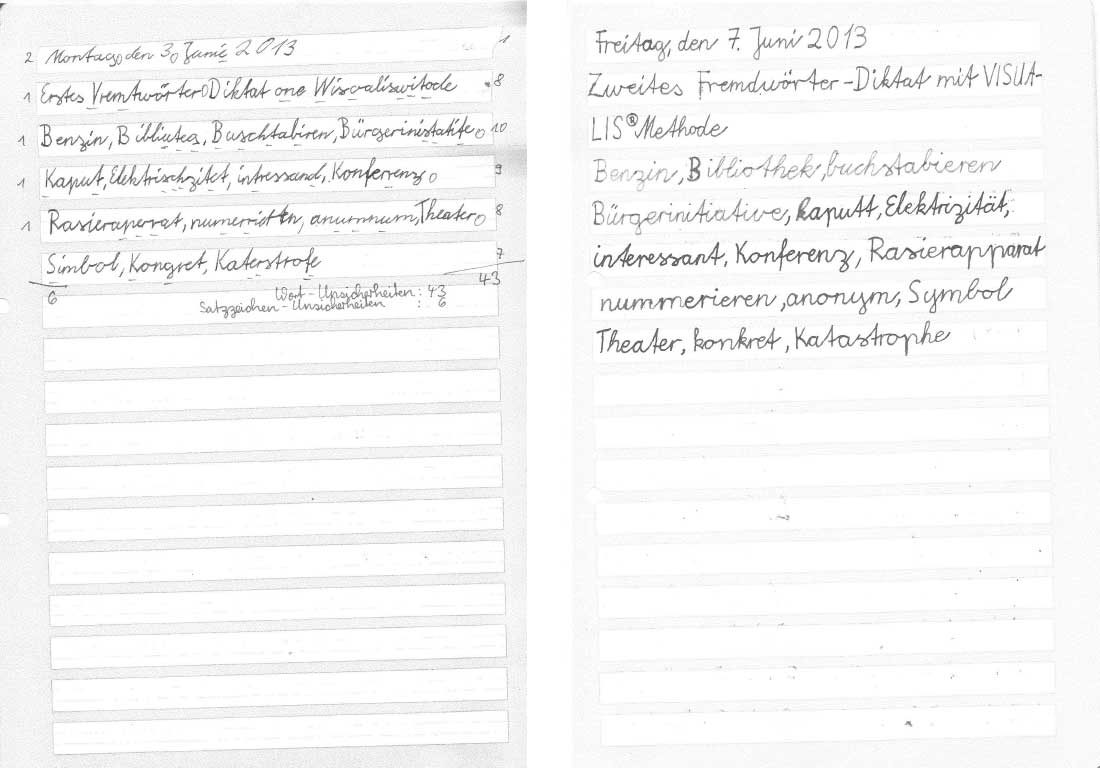 2 Montag, den 3. Juni 2013 1
1 Erstes Vremtwörter Diktat one Wisvaliswitode 8
1 Benzin, Bibliuteg, Buschtabiren, Bürgerinistatife 10
1 Kaput, Elektrischzitet, intressand, Konferrenz 9
1 Rasieraperrat, numerirten, anumnum, Theater 8
Simbol, Kongret, Katerstrofe 7
6 43
Wort-Unsicherheiten: 43
Satzzeichen-Unsicherheiten : 6
Freitag, den 7. Juni 2013
Zweites Fremdwörter-Diktat mit VISUA-
LIS® Methode
Benzin, Bibliothek, buchstabieren
Bürgerinitiative, kaputt, Elektrizität,
interessant, Konferenz, Rasierapparat
nummerieren, anonym, Symbol
Theater, konkret, Katastrophe